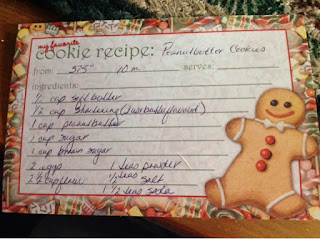 my favorite
cookie recipe: Peanutbutter Cookies
from: 375° 10 m serves:
ingredients:
1/2 cup soft butter
1/2 cup Shortening (I use butter flavored)
1 cup peanutbutter
1 cup sugar
1 cup brown sugar
2 eggs 1 teas powder
2 1/2 cup flour 1/2 teas salt
1 1/2 teas soda